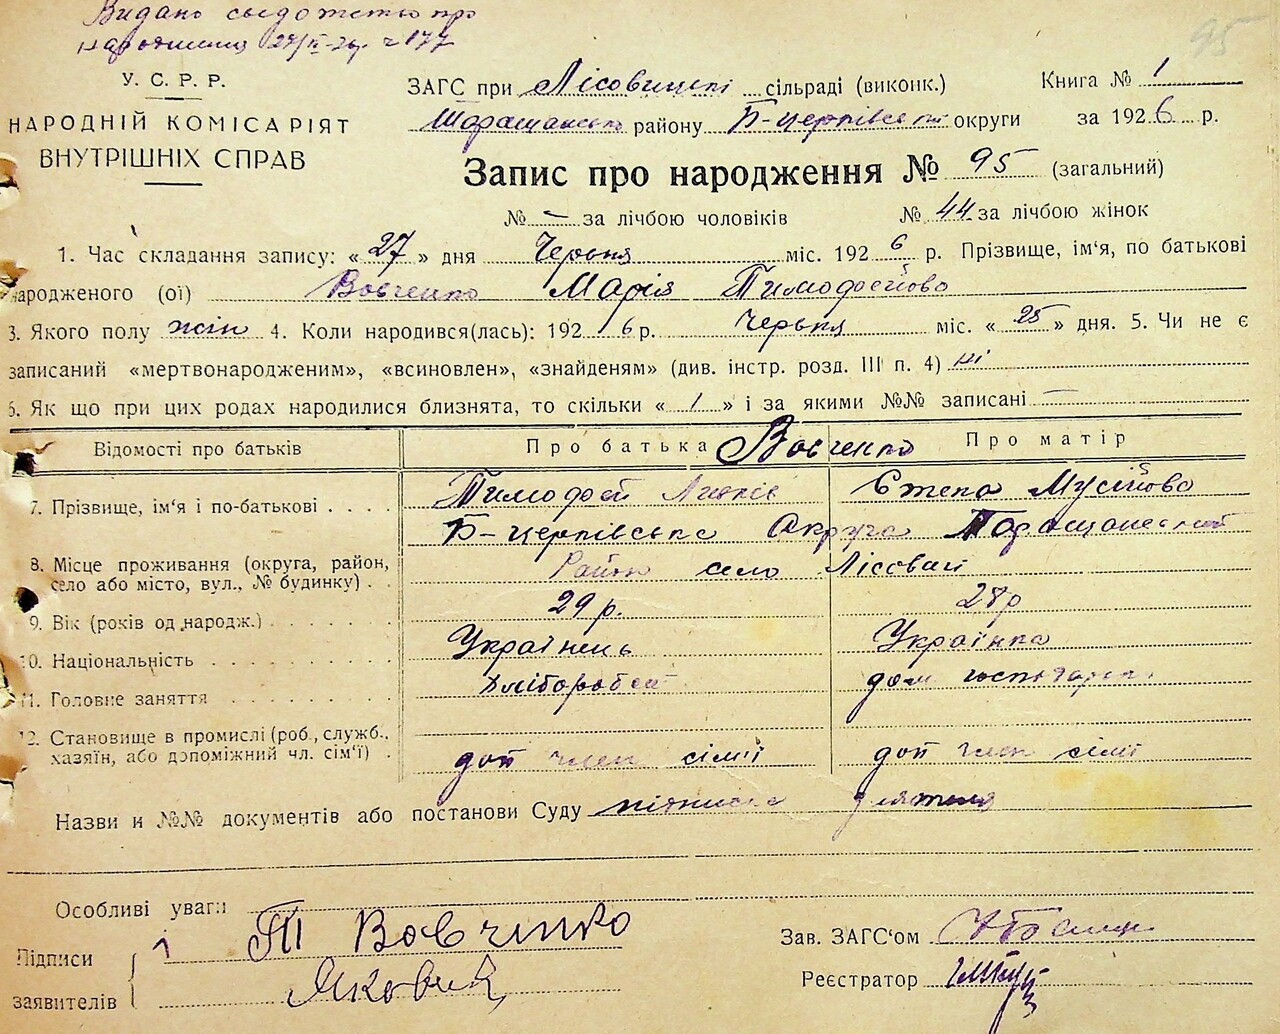 Видано свідоцтво про
народження
95
У. С. Р. Р.
НАРОДНІЙ КОМІСАРІЯТ
ВНУТРІШНІХ СПРАВ
ЗАГС при Лісовицькі сільраді (виконк.)
Таращанськ району Б-церківські округи
Книга № 1
за 1926 р.
Запис про народження № 95 (загальний)
№ – за лічбою чоловіків № 44 за лічбою жінок
1. Час складання запису: « 27 » дня Червня міс. 1926 р. Прізвище, ім'я, по батькові
народженого (ої) Вовченко Марія Тимофеійова
3. Якого полу жін 4. Коли народився(лась): 1926 р. Червня міс. « 25 » дня. 5. Чи не є
записаний «мертвонародженим», «всиновлен», «знайденям» (див. інстр. розд. III п. 4) ні
6. Як що при цих родах народилися близнята, то скільки « 1 » і за якими №№ записані —
Відомості про батьків Про батька Вовченко Про матір
7. Прізвище, ім'я і по-батькові Тимофей Степа Мусійова
Б-церківська Округа Таращанський
8. Місце проживання (округа, район, село або місто, вул., № будинку) Район село Лісовичі
9. Вік (років од народж.) 29 р. 28 р
10. Національність Українець Українка
11. Головне заняття Хлібороб дом господарк
12. Становище в промислі (роб., служб., хазяїн, або допоміжний чл. сім'ї) доп член сімії доп член сімії
Назви и №№ документів або постанови Суду
Особливі уваги
Підписи заявителів 1 ТП Вовченко
Яковик
Зав. ЗАГС'ом
Реєстратор